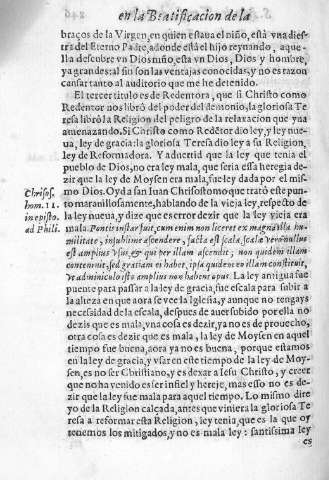 en la Beatificacion de la
braços de la Virgen, en quien estaua el niño, està vna dies-
tra del Eterno Padre, adonde està el hijo reynando, aque-
lla descubre vn Dios niño, esta vn Dios, Dios y hombre,
ya grande: al fin son las ventajas conocidas, y no es razon
cansar tanto al auditorio que me he detenido.
El tercer titulo es de Redentora, que si Christo como
Redentor nos librò del poder del demonio, la gloriosa Te
resa librò la Religion del peligro de la relaxacion que yua
amenazando. Si Christo como Redẽtor dio ley, y ley nue-
ua, ley de gracia: la gloriosa Teresa dio ley a su Religion,
ley de Reformadora. Y aduertid que la ley que tenia el
pueblo de Dios, no era ley mala, que seria essa heregia de-
zir que la ley de Moysen era mala, fue ley dada por el mis-
mo Dios. Oyd a san Iuan Chrisostomo que tratò este pun-
to marauillosamente, hablando de la vieja ley, respecto de
la ley nueua, y dize que es error dezir que la ley vieja era
mala. Pontis instar fuit, cum enim non liceret ex magna illa hu-
militate, in sublime ascendere, facta est scala, scalæ verò nullus
est amplius vsus, & qui per illam ascendit, non quidem illam
contemnit, sed gratiam ei habet, ipsa quidem eo illam constituit,
vt adminiculo isto amplius non habeat opus. La ley antigua fue
puente para passar a la ley de gracia, fue escala para subir a
la alteza en que aora se vee la Iglesia, y aunque no tengays
necessidad de la escala, despues de auer subido por ella no
dezis que es mala, vna cosa es dezir, ya no es de prouecho,
otra cosa es dezir que es mala, la ley de Moysen en aquel
tiempo fue buena, aora ya no es buena, porque estamos
en la ley de gracia, y vsar en este tiempo de la ley de Moy-
sen, es no ser Christiano, y es dexar a Iesu Christo, y creer
que no ha venido es ser infiel y hereje, mas esso no es de-
zir que la ley fue mala para aquel tiempo. Lo mismo dire
yo de la Religion calçada, antes que viniera la gloriosa Te
resa a reformar esta Religion, ley tenia, que es la que oy
tenemos los mitigados, y no es mala ley: santissima ley
es
Chrisos.
hom. 11.
in episto.
ad Phili.